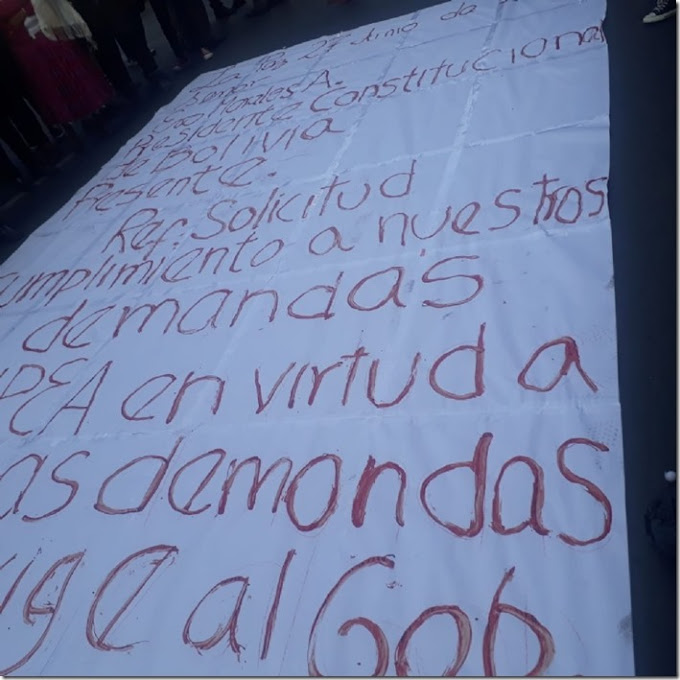 La Paz 27 Junio de
Señor:
Evo Morales A.
Presidente Constitucional
de Bolivia
Presente.
Ref: Solicitud
cumplimiento a nuestros
demandas
UPEA en virtud a
as demondas
ige al Gob.